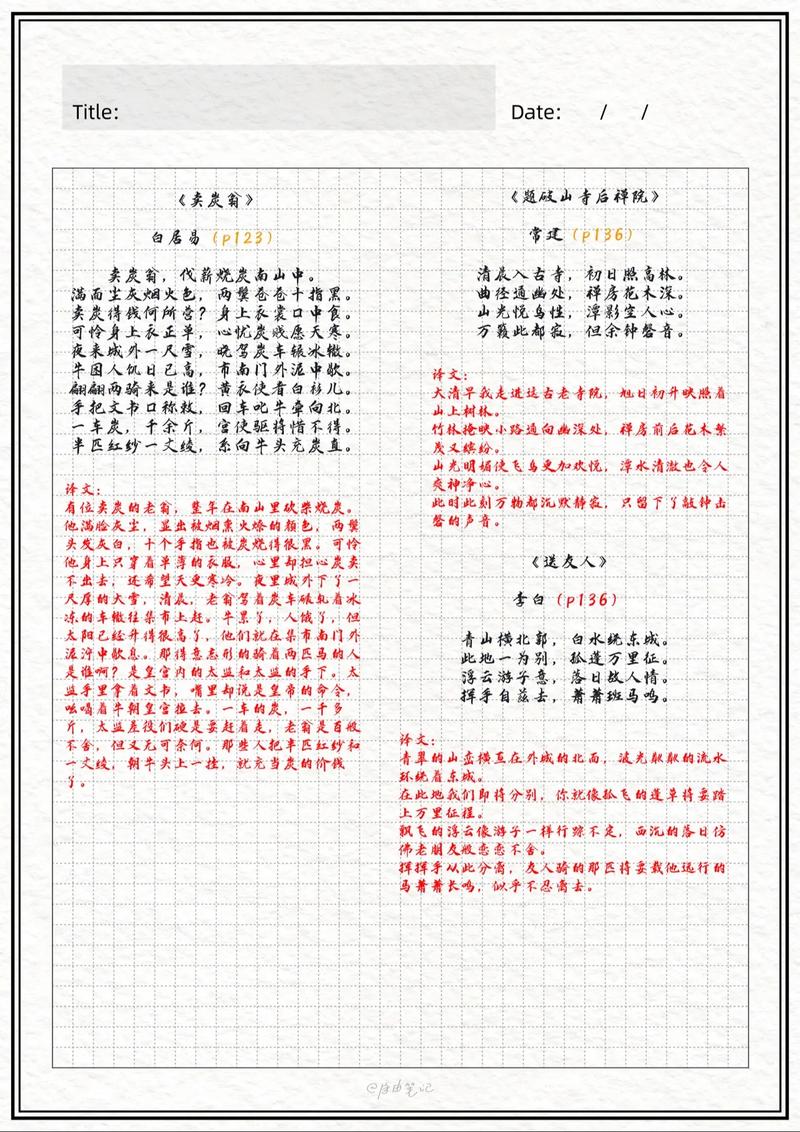 Title:
Date: / /
《卖炭翁》
白居易（p123）
卖炭翁，伐薪烧炭南山中。
满面尘灰烟火色，两鬓苍苍十指黑。
卖炭得钱何所营？身上衣裳口中食。
可怜身上衣正单，心忧炭贱愿天寒。
夜来城外一尺雪，晓驾炭车辗冰辙。
牛困人饥日已高，市南门外泥中歇。
翩翩两骑来是谁？黄衣使者白衫儿。
手把文书口称敕，回车叱牛牵向北。
一车炭，千余斤，宫使驱将惜不得。
半匹红纱一丈绫，系向牛头充炭直。
译文：
有位卖炭的老翁，整年在南山里砍柴烧炭。
他满脸灰尘，显出被烟熏火燎的颜色，两鬓
头发灰白，十个手指也被炭烧得很黑。可怜
他身上只穿着单薄的衣服，心里却担心炭卖
不出去，还希望天更寒冷。夜里城外下了一
尺厚的大雪，清晨，老翁驾着炭车碾轧着冰
冻的车辙往集市上赶。牛累了，人饿了，但
太阳已经升得很高了，他们就在集市南门外
泥泞中歇息。那得意忘形的骑着两匹马的人
是谁啊？是皇宫内的太监和太监的手下。太
监手里拿着文书，嘴里却说是皇帝的命令，
吆喝着牛朝皇宫拉去。一车的炭，一千多
斤，太监差役们硬是要赶着走，老翁是百般
不舍，但又无可奈何。那些人把半匹红纱和
一丈绫，朝牛头上一挂，就充当炭的价钱
了。
《题破山寺后禅院》
常建（p136）
清晨入古寺，初日照高林。
曲径通幽处，禅房花木深。
山光悦鸟性，潭影空人心。
万籁此都寂，但余钟磬音。
译文：
大清早我走进这古老寺院，旭日初升映照着
山上树林。
竹林掩映小路通向幽深处，禅房前后花木繁
茂又缤纷。
山光明媚使飞鸟更加欢悦，潭水清澈也令人
爽神净心。
此时此刻万物都沉默静寂，只留下了敲钟击
磬的声音。
《送友人》
李白（p136）
青山横北郭，白水绕东城。
此地一为别，孤蓬万里征。
浮云游子意，落日故人情。
挥手自兹去，萧萧班马鸣。
译文：
青翠的山峦横亘在外城的北面，波光粼粼的流水
环绕着东城。
在此地我们即将分别，你就像孤飞的蓬草将要踏
上万里征程。
飘飞的浮云像游子一样行踪不定，西沉的落日仿
佛老朋友般恋恋不舍。
挥挥手从此分离，友人骑的那匹将要载他远行的
马萧萧长鸣，似乎不忍离去。